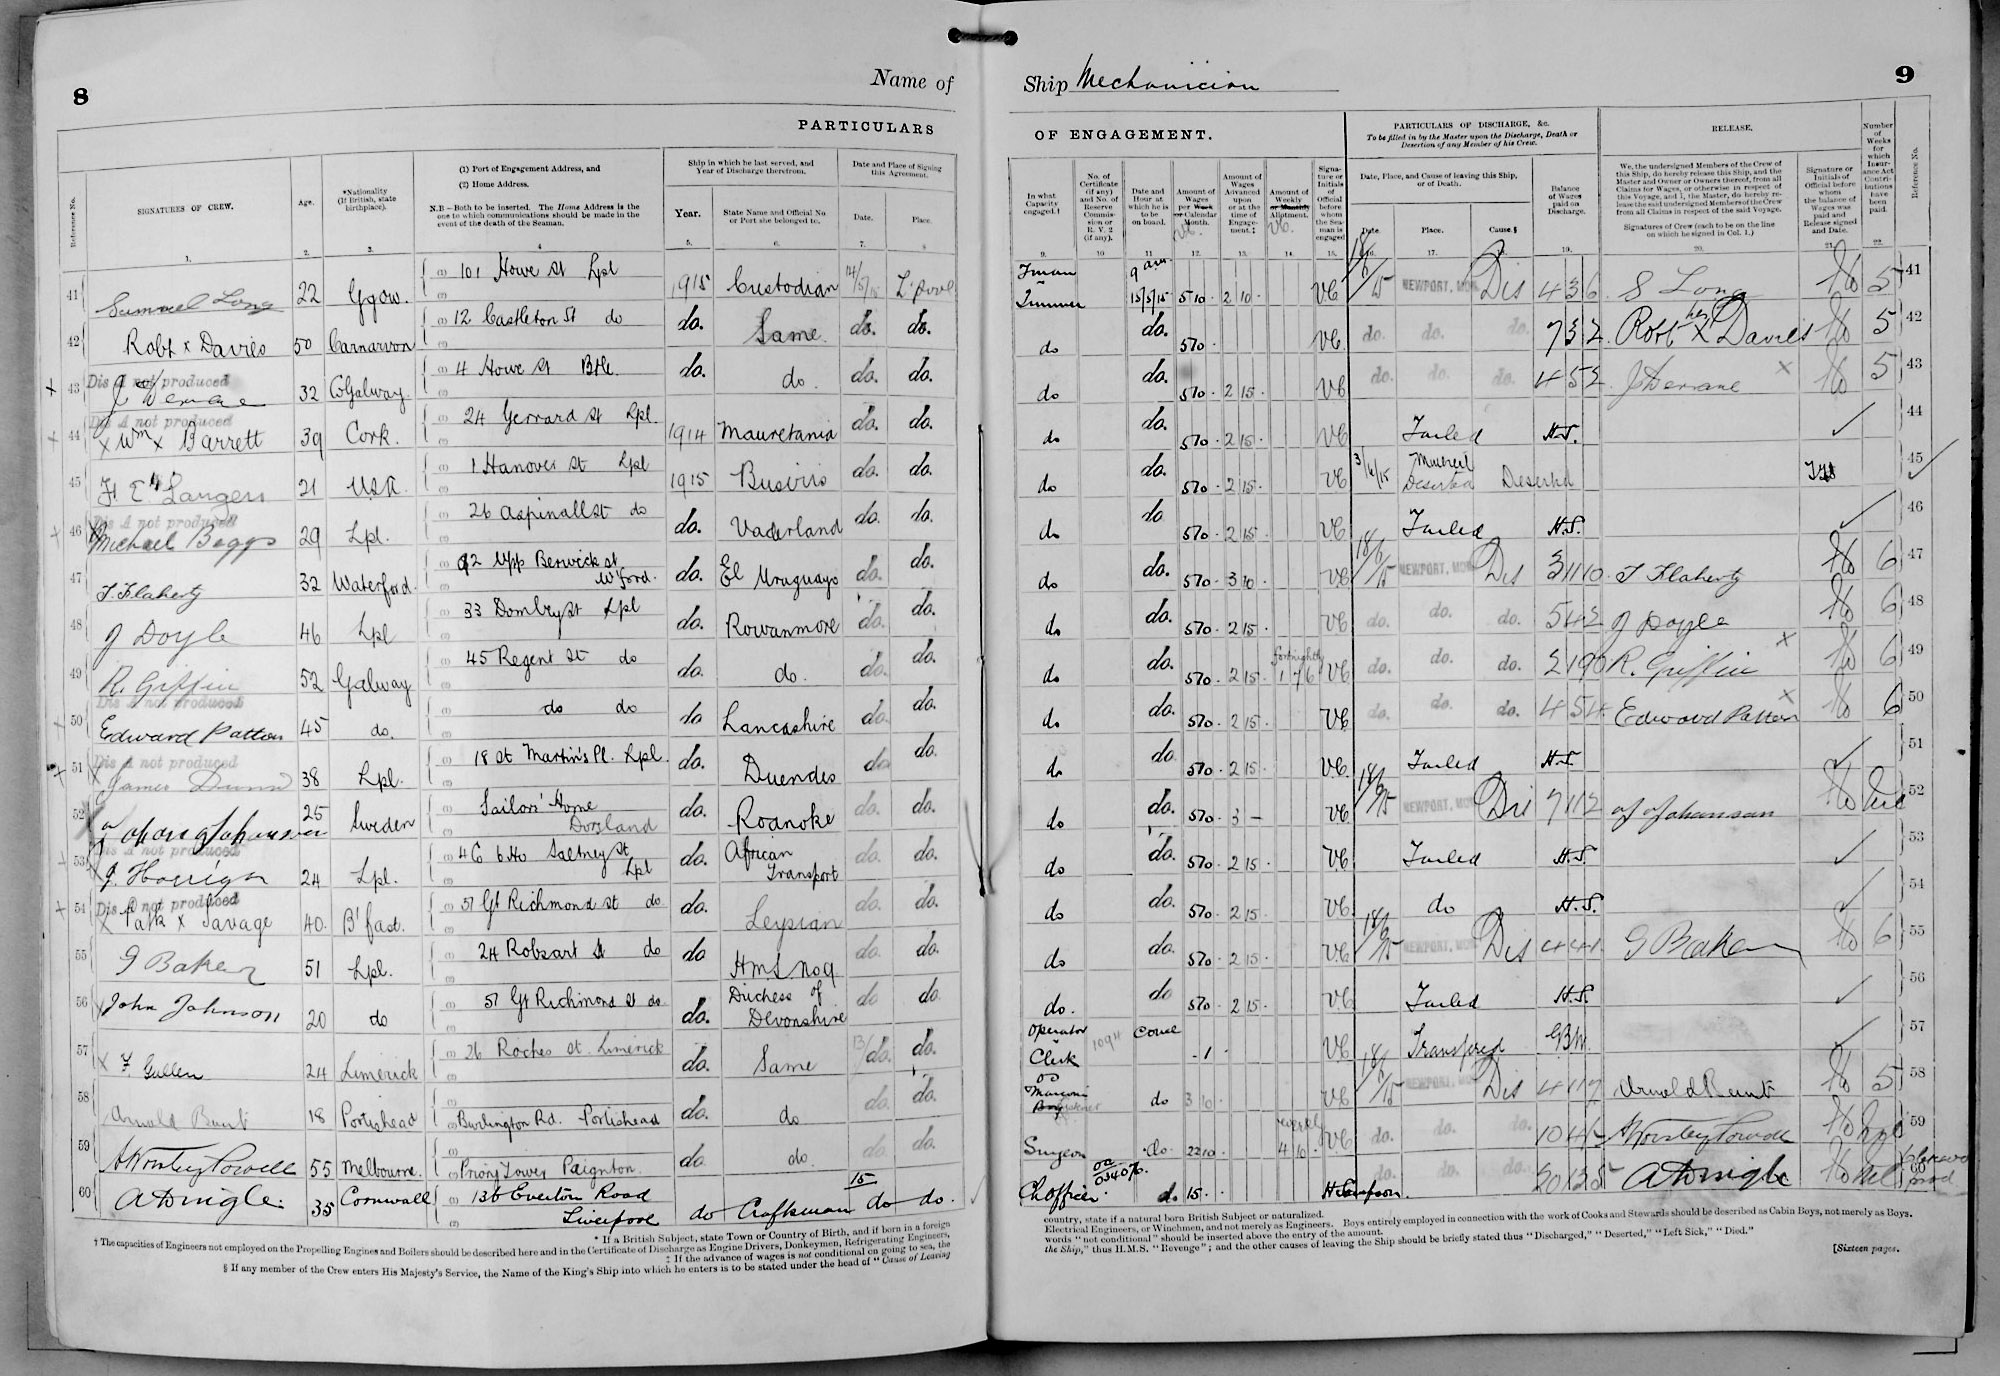 8
Name of
PARTICULARS
Reference No.
SIGNATURES OF CREW.
Age.
*Nationality (If British, state birthplace).
(1) Port of Engagement Address, and
(2) Home Address.
N.B—Both to be inserted. The Home Address is the one to which communications should be made in the event of the death of the Seaman.
Ship in which he last served, and Year of Discharge therefrom.
Year.
State Name and Official No or Port she belonged to.
Date and Place of Signing this Agreement.
Date.
Place.
1. 2. 3. 4 5. 6. 7. 8
41 Samuel Long 22 Ggow. 101 Howe St Lpl 1915 Custodian 14/5/15 L'pool
42 Robt x Davies 50 Carnarvon 12 Castleton St do do. Same. do. do.
43 Dis A not produced
J Derrane 32 CoGalway 4 Howe St Btle. do. do. do. do.
44 Dis A not produced
x Wm x Barrett 39 Cork. 24 Gerrard St Lpl. 1914 Mauretania do. do.
45 21 USA. 1 Hanover St Lpl 1915 Busiris do. do.
46 Dis A not produced
Michael Beggs 29 Lpl. 26 Aspinall St do do. Vaderland do. do.
47 T. Flaherty 32 Waterford. 92 Upp Berwick st W'ford. do. El Uruguayo do. do.
48 J Doyle 46 Lpl 33 Dombey St Lpl do. Rowanmore do. do.
49 R. Griffin 52 Galway 45 Regent St do do. do. do. do.
50 Dis A not produced
Edward Patton 45 do. do do do Lancashire do. do.
51 Dis A not produced
James Dunn 38 Lpl. 18 St Martin's Pl. Lpl. do. Duendes do do.
52 25 Sweden Sailors' Home do. Roanoke do. do.
53 Dis A not produced
J. Horrigan 24 Lpl. 4 C 6 Ho Saltney St Lpl do. African Transport do. do.
54 Dis A not produced
x Patk x Savage 40. B'fast. 57 Gt Richmond St do do. Leysian do. do.
55 G Baker 51 Lpl. 24 Robsart St do do H.M.S No 9 do. do.
56 John Johnson 20 do 57 Gt Richmond St do do. Duchess of Devonshire do do.
57 24 Limerick 26 Roches St. Limerick do. Same 13/do. do.
58 Arnold Bunt 18 Portishead Burlington Rd. Portishead do. do do. do.
59 A Worsley Powell 55 Melbourne. Priory Tower Paignton. do do. do do.
60 A Dingle. 35 Cornwall 136 Everton Road Liverpool do Craftsman 15 do do.
* If a British Subject, state Town or Country of Birth, and if born in a foreign
† The capacities of Engineers not employed on the Propelling Engines and Boilers should be described here and in the Certificate of Discharge as Engine Drivers, Donkeymen, Refrigerating Engineers,
‡ If the advance of wages is not conditional on going to sea, the
§ If any member of the Crew enters His Majesty's Service, the Name of the King's Ship into which he enters is to be stated under the head of "Cause of Leaving
Ship Mechanician
9
OF ENGAGEMENT.
In what Capacity engaged.†
No. of Certificate (if any) and No. of Reserve Commission or R. V. 2 (if any).
Date and Hour at which he is to be on board.
Amount of Wages per Week or Calendar Month.
Amount of Wages Advanced upon or at the time of Engagement.‡
Amount of Weekly or Monthly Allotment.
Signature or Initials of Official before whom the Seaman is engaged
PARTICULARS OF DISCHARGE, &c.
To be filled in by the Master upon the Discharge, Death or Desertion of any Member of his Crew.
Date, Place, and Cause of leaving this Ship, or of Death.
Date. Place. Cause.§
Balance of Wages paid on Discharge.
RELEASE.
We, the undersigned Members of the Crew of this Ship, do hereby release this Ship, and the Master and Owner or Owners thereof, from all Claims for Wages, or otherwise in respect of this Voyage, and I, the Master, do hereby release the said undersigned Members of the Crew from all Claims in respect of the said Voyage.
Signatures of Crew (each to be on the line on which he signed in Col. 1.)
Signature or Initials of Official before whom the balance of Wages was paid and Release signed and Date.
Number of Weeks for which Insurance Act Contributions have been paid.
Reference No.
9. 10 11 12. 13. 14. 15. 16. 17. 19. 20. 21. 22.
Fman & Trimmer 9 am 15/5/15 5 10 2 10 VC 18/6/15 NEWPORT, MON. Dis 4 3 6 S Long 5 41
do do. 5 10 VC do. do. do. 7 3 2 Robt his x Davies 5 42
do do. 5 10 2 15 VC do. do. do. 4 5 2 J Derrane x 5 43
do do. 5 10 2 15 VC Failed H.S. ✓ 44
do do. 5 10 2 15 VC Deserted 45 ✓
do do 5 10 2 15 VC Failed H.S. ✓ 46
do do. 5 10 3 10 VC 18/6/15 NEWPORT, MON. Dis 3 11 10 T Flaherty 6 47
do do. 5 10 2 15 VC do. do. do. 5 4 2 J Doyle 6 48
do do. 5 10 2 15 fortnightly 1 7 6 VC do. do. do. 2 19 0 R. Griffin x 6 49
do do. 5 10 2 15 VC do. do. do. 4 5 4 Edward Patton x 6 50
do do 5 10 2 15 VC Failed H.S. ✓ 51
do do. 5 10 3 — VC 18/6/15 NEWPORT, MON. Dis 7 11 2 52
do do. 5 10 2 15 VC Failed H.S. ✓ 53
do do. 5 10 2 15 VC do H.S. ✓ 54
do do. 5 10 2 15 VC 18/6/15 NEWPORT, MON. Dis 4 4 1 G Baker 6 55
do. do 5 10 2 15 VC Failed H.S. ✓ 56
Operator & Clerk 1094 - 1 VC Transfrred ✓ 57
Marconi do 3 10 VC 18/6/15 NEWPORT, MON. Dis 4 11 7 Arnold Bunt 5 58
Surgeon do 22 10 weekly 4 10 VC do. do. do. A Worsley Powell 59
Ch Officer 034076. do 15 H Sampson. do. do. do. A Dingle Nil 60
country, state if a natural born British Subject or naturalized.
Electrical Engineers, or Winchmen, and not merely as Engineers. Boys entirely employed in connection with the work of Cooks and Stewards should be described as Cabin Boys, not merely as Boys.
words "not conditional" should be inserted above the entry of the amount.
the Ship," thus H.M.S. "Revenge"; and the other causes of leaving the Ship should be briefly stated thus "Discharged," "Deserted," "Left Sick," "Died."
[Sixteen pages.